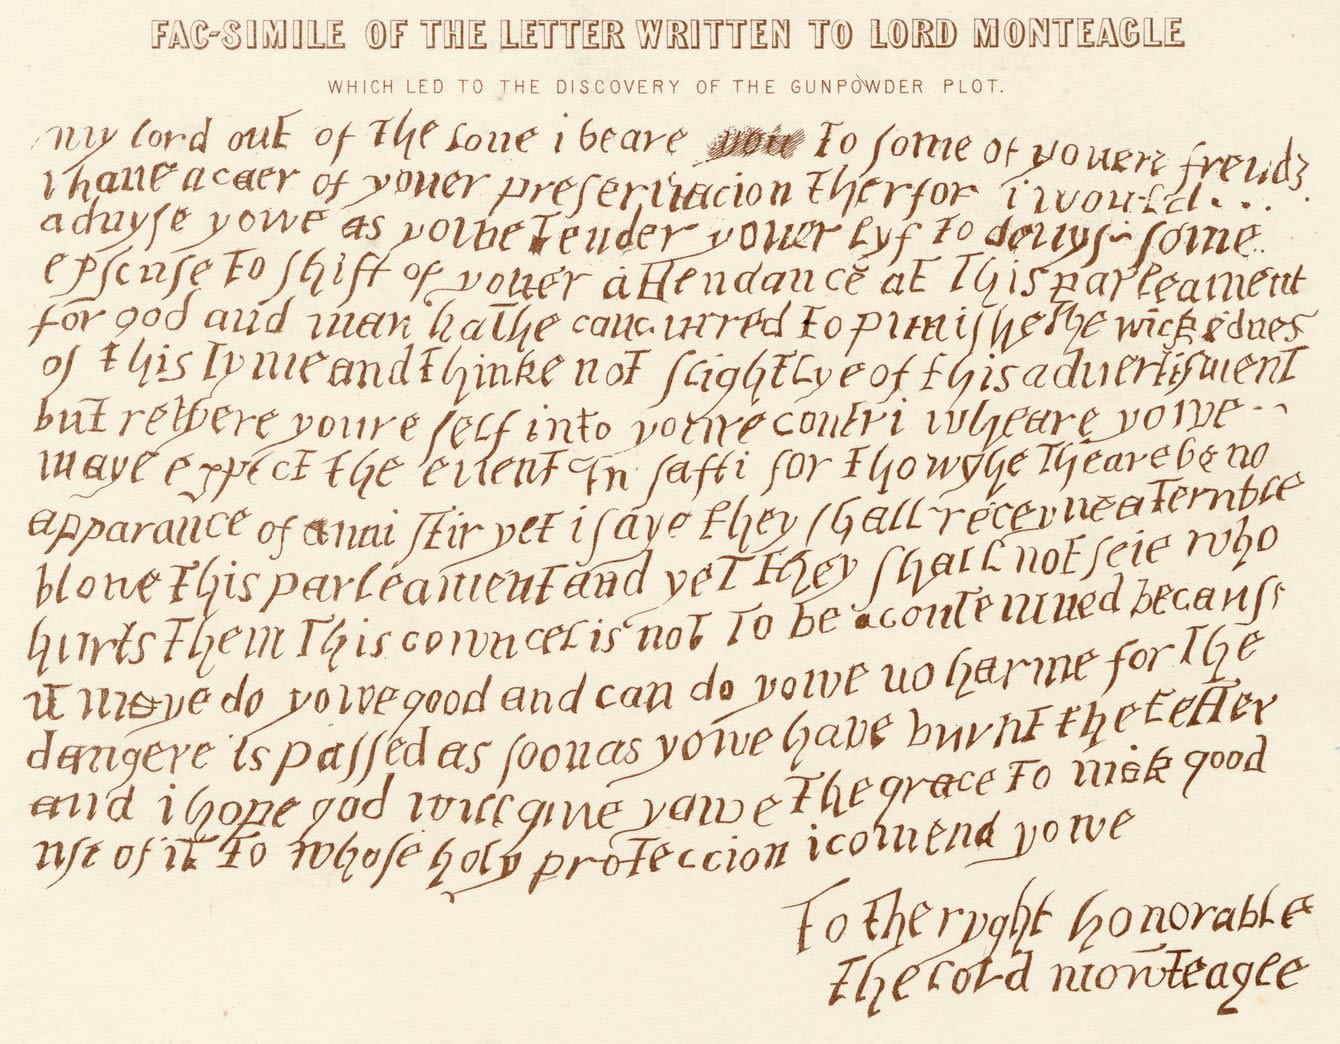 FAC-SIMILE OF THE LETTER WRITTEN TO LORD MONTEAGLE
WHICH LED TO THE DISCOVERY OF THE GUNPOWDER PLOT.
my lord out of the loue i beare to some of youere frends
i haue a caer of youer preseruacion therfor i would...
aduyse yowe as yowe tender youer lyf to deuys some
epscuse to shift of youer attendance at this parleament
for god and man hathe concurred to punishe the wickednes
of this tyme and thinke not slightlye of this aduertisment
but retyere youre self into youre contri wheare yowe
maye expect the euent in safti for thowghe theare be no
apparance of anni stir yet i saye they shall receyue a terrible
blowe this parleament and yet they shall not seie who
hurts them this cowncel is not to be acontemned because
it maye do yowe good and can do yowe no harme for the
dangere is passed as soon as yowe have burnt the letter
and i hope god will giue yowe the grace to mak good
use of it to whose holy proteccion i comend yowe
To the ryght honorable
the lord mowteagle